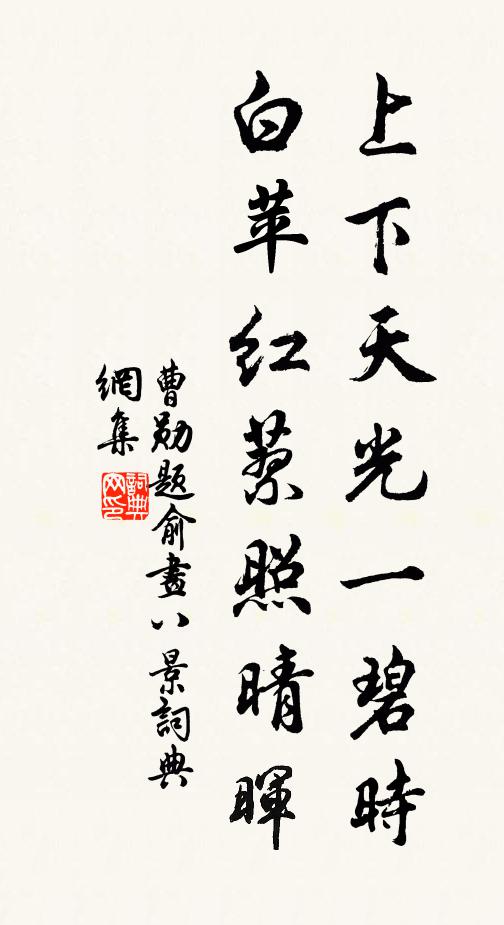 上下天光一碧時
白苹紅蓼照晴暉
曹勛題俞畫八景詞典
網集
詞典网印